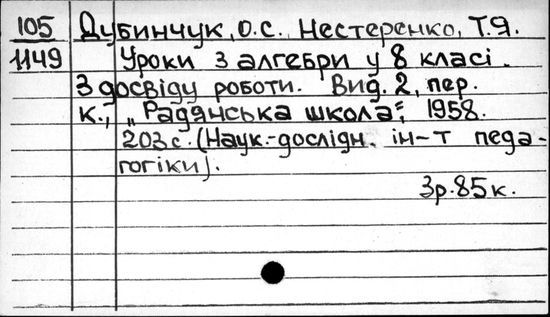 105 Дубинчук, О.С. Нестеренко, Т.Я.
1149 Уроки з алгебри у 8 класі.
З досвіду роботи. Вид. 2, пер.
К., „Радянська школа", 1958.
203 с. (Наук.-дослідн. ін-т педа-
гогіки).
3р.85к.